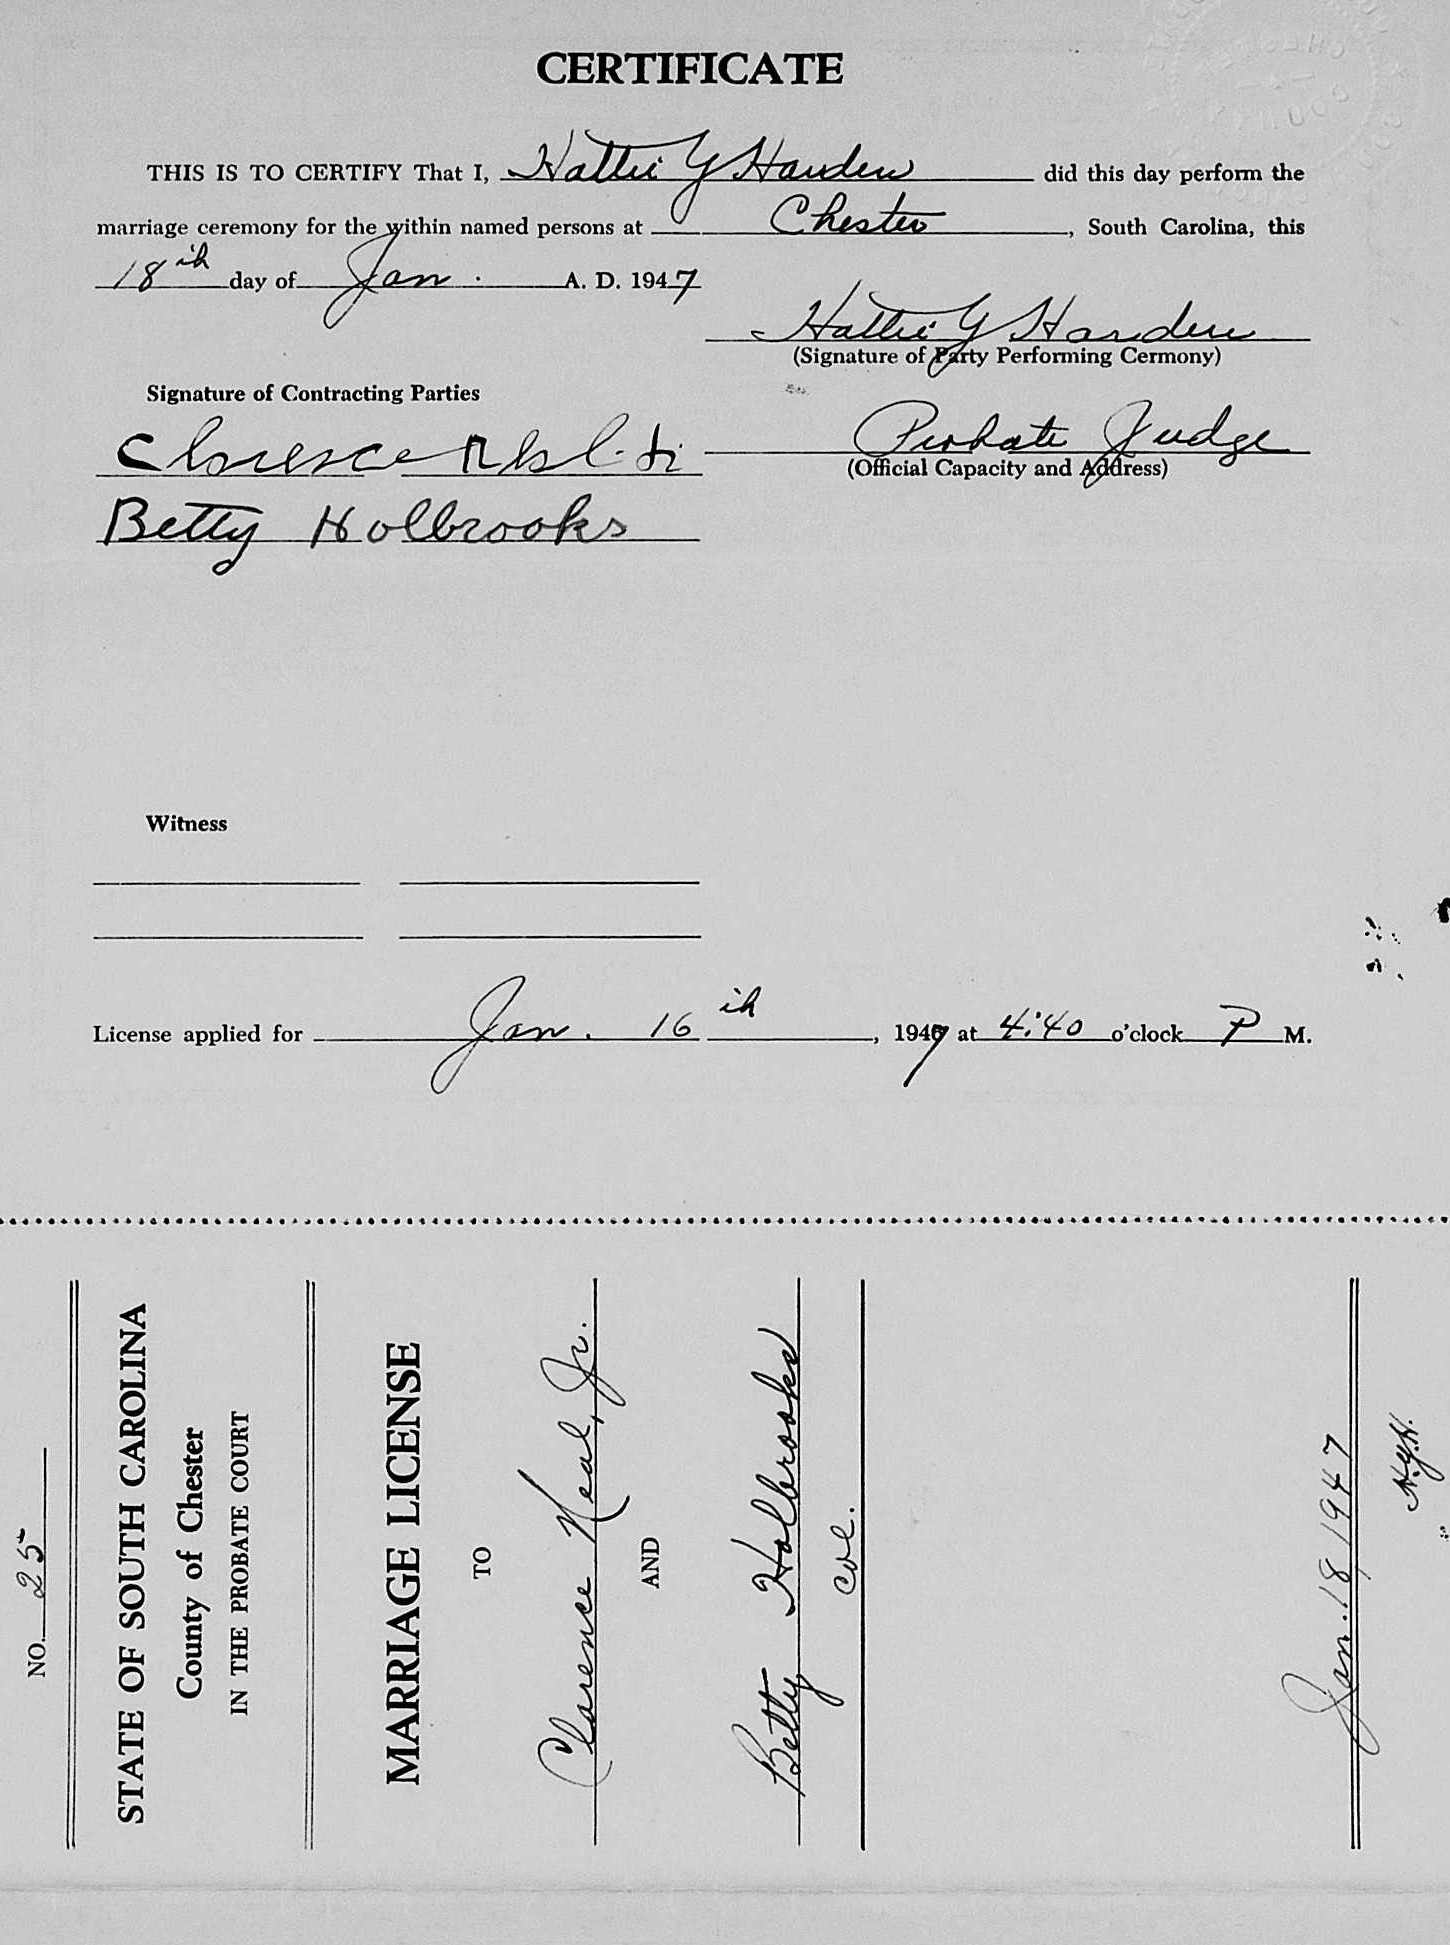 CERTIFICATE
THIS IS TO CERTIFY That I, Hattie Y Harden did this day perform the
marriage ceremony for the within named persons at Chester, South Carolina, this
18th day of Jan. A. D. 1947
Hattie Y Harden
(Signature of Party Performing Cermony)
Signature of Contracting Parties
Probate Judge
(Official Capacity and Address)
Clarence
Betty Holbrooks
Witness
License applied for Jan. 16th, 1947 at 4:40 o'clock P M.
NO. 25
STATE OF SOUTH CAROLINA
County of Chester
IN THE PROBATE COURT
MARRIAGE LICENSE
TO
Clarence Neal, Jr.
AND
Betty Holbrooks
Col.
Jan. 18 1947
H.Y.H.